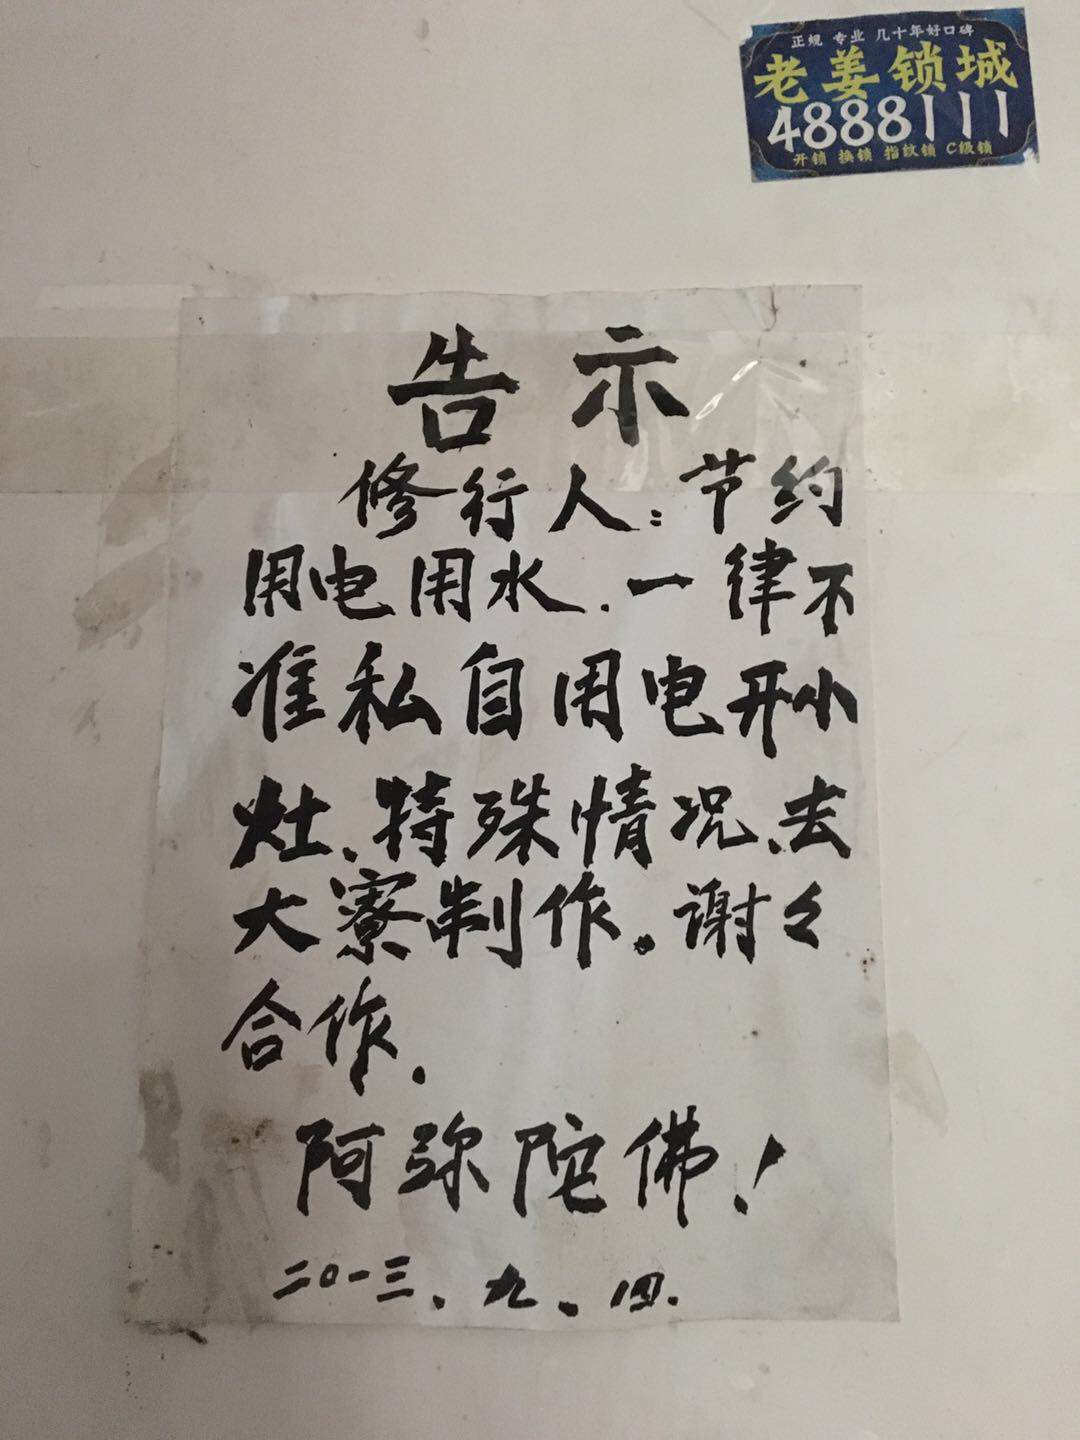 正规 专业 几十年好口碑
老姜锁城
4888111
开锁 换锁 指纹锁 C级锁
告示
修行人：节约
用电用水.一律不
准私自用电开小
灶、特殊情况、去
大寮制作。谢々
合作.
阿弥陀佛！
二〇一三、九、四.